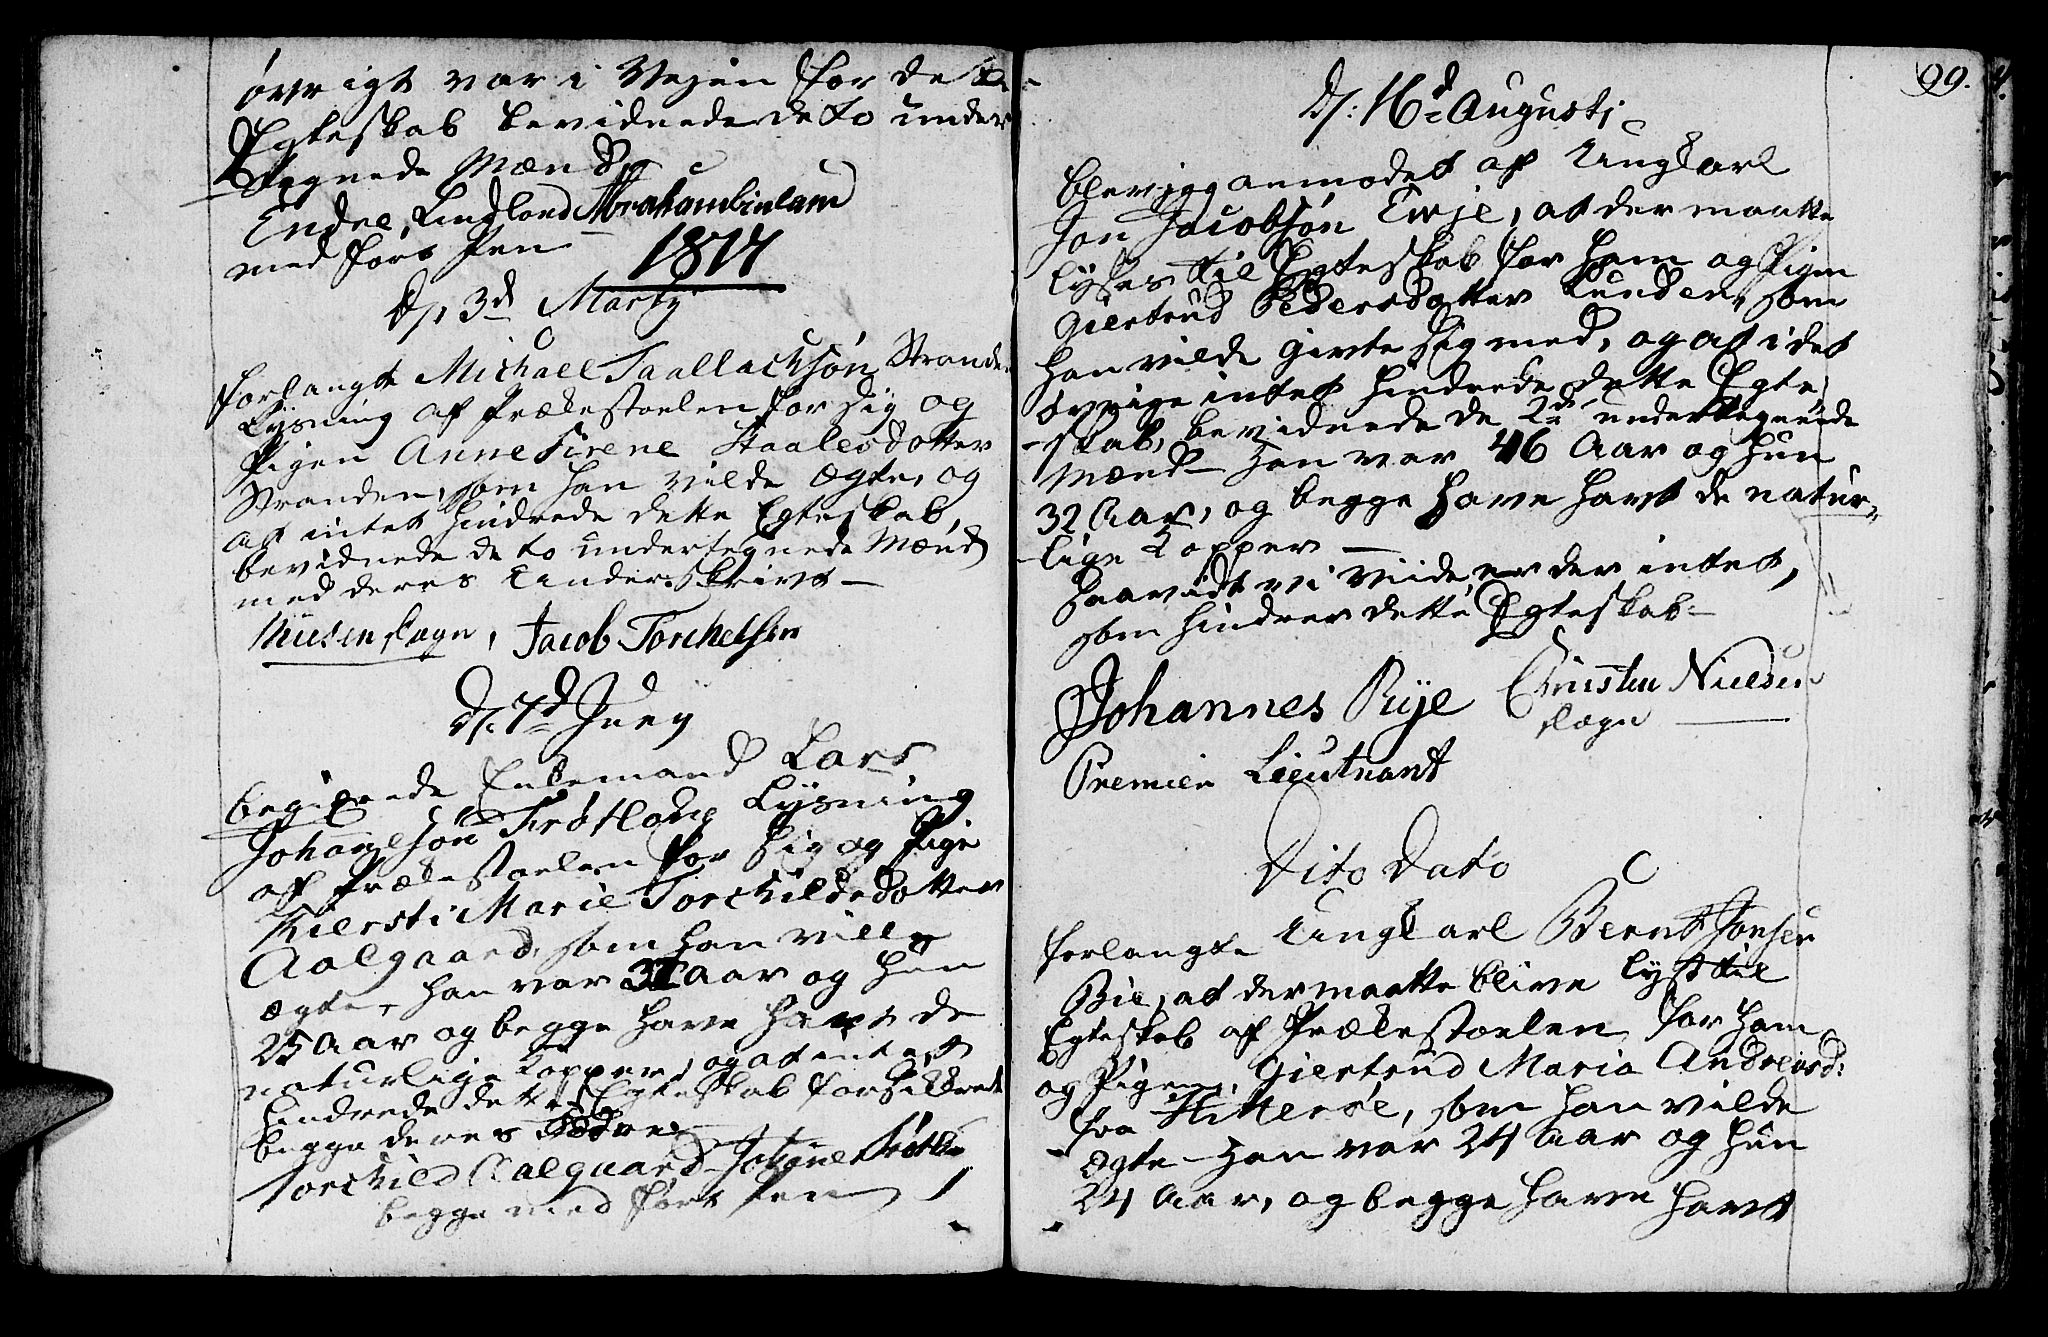 øvrigt var i Vejen for dette
Egteskab bevidnede de to under
tegnede Mænd
Endre Lindland Abraham Linland
med førs Pen
1814
D. 3d Martj
forlangte Michael Taallachsøn Stranden
Lysning af Prækestoelen for sig og
Pigen Anne Sirene Staalesdotter
Stranden, som han vilde ægte, og
at intet hindrede dette Egteskab,
bevidnede de to undertegnede Mænd
med deres Underskrivt
Nielsen Aagn, Jacob Torchelsen
D. 7d Juny
begierede Enkemand Lars
Johannesøn Frøtland Lysning
af Prækestoelen for sig og Pige
Kiersti Marie Torchildsdotter
Aalgaard, som han ville
ægte, han var 31 Aar og hun
25 Aar og begge have havt de
naturlige Kopper, og at intet
hindrede dette Egteskab forsikkrede
begge deres Fædre
Torchild Aalgaard Johannes Frøtland
begge med førs Pen
99.
D: 16d Augusti
blev jeg anmodet af Ungkarl
Jon Jacobsøn Ewje, at der maatte
lyses til Egteskab for ham og Pigen
Giertrud Pedersdotter Lunden, som
han vilde givte sig med, og at i det
øvrige intet hindrede dette Egte
skab, bevidnede de 2de undertegnede
Mænd - Han var 46 Aar og hun
32 Aar, og begge have havt de natur-
lige Kopper
Saavidt vi viide, er der intet,
som hindrer dette Egteskab
Johannes Rye Christen Nielsen
Aagn
Premier Lieutnant
Dito Dato
forlangte Ungkarl Bernt Jonsen
Bie, at der maatte blive lyst til
Egteskab af Prækestoelen for ham
og Pigen, Giertrud Maria Andreasd:
fra Hitterøe, som han vilde
ægte - Han var 24 Aar og hun
24 Aar, og begge have havt